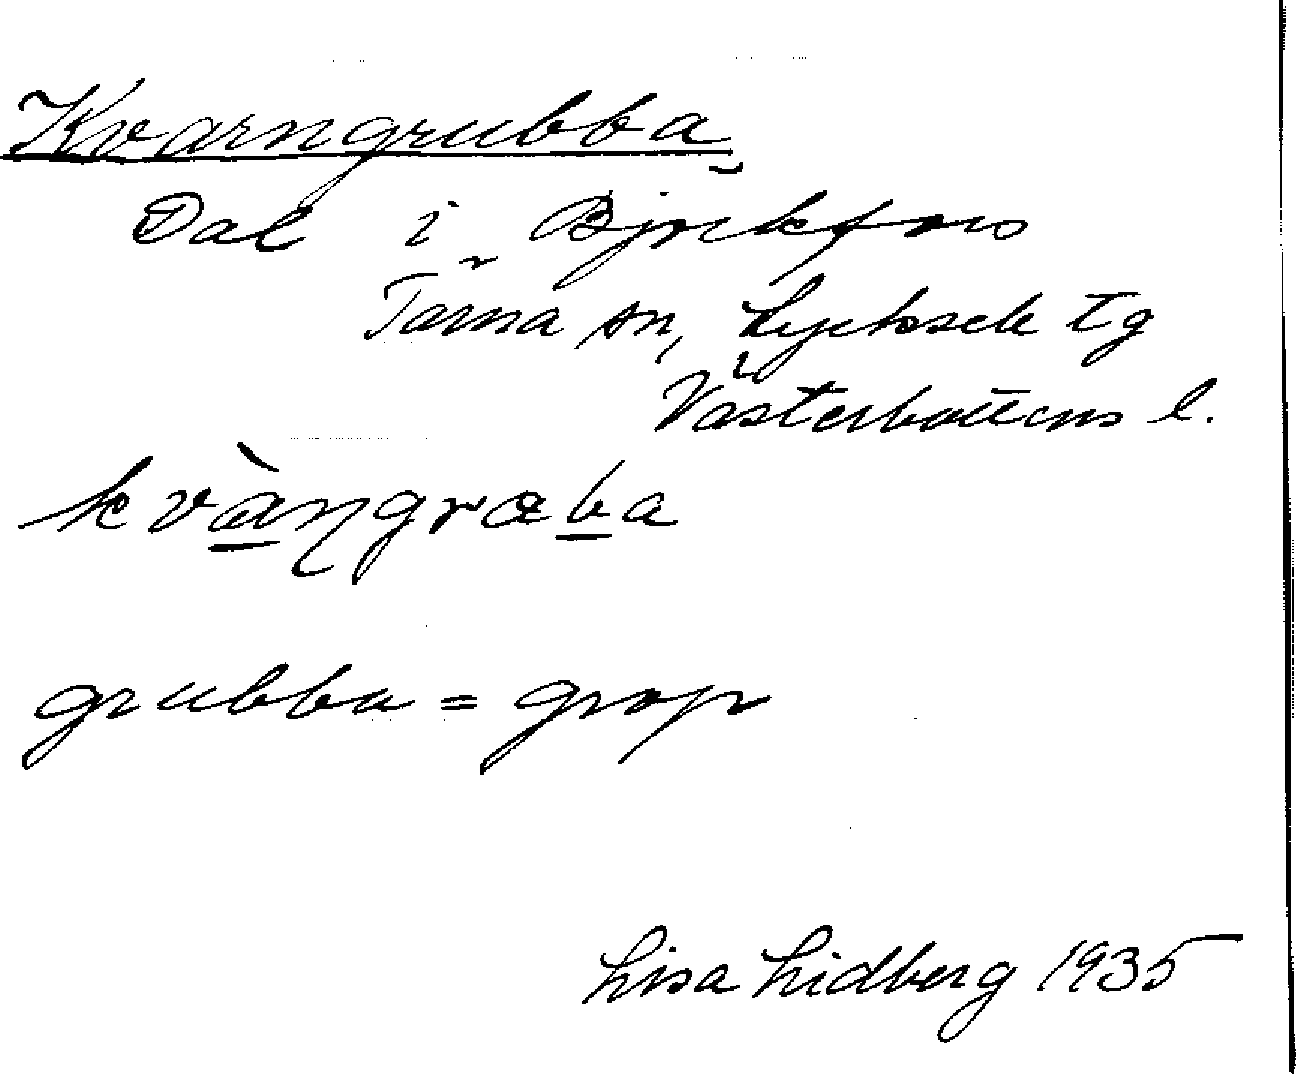 Kvarngrubba
Dal i Björkfors
Tärna sn, Lycksele tg
Västerbottens l.
kvàŋgrœba
grubba = grop
Lisa Lidberg 1935